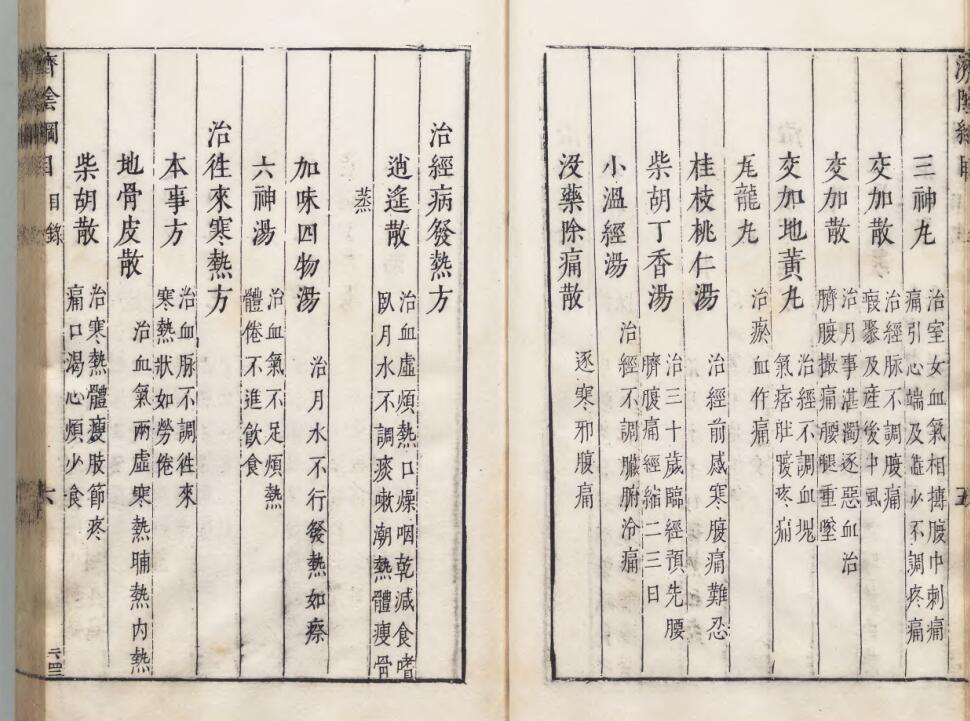 三神丸
治室女血氣相摶腹中刺痛
痛引心端及經少不調疼痛
交加散
治經脈不調腹痛
瘕聚及産後中風
交加散
治月事湛濁逐惡血治
臍腹撮痛腰腿重墜
交加地黃丸
治經不調血塊
氣痞肚腹疼痛
瓦龍丸
治瘀血作痛
桂枝桃仁湯
治經前感寒腹痛難忍
柴胡丁香湯
治三十歲臨經預先腰
臍腹痛經縮二三日
小溫經湯
治經不調臟腑冷痛
沒藥除痛散
逐寒邪腹痛
濟陰綱目
目錄
治經病發熱方
逍遙散
治血虛煩熱口燥咽乾減食嗜
臥月水不調痰嗽潮熱體瘦骨
蒸
加味四物湯
治月水不行發熱如瘵
六神湯
治血氣不足煩熱
體倦不進飲食
治徃來寒熱方
本事方
治血脈不調徃來
寒熱狀如勞倦
地骨皮散
治血氣兩虛寒熱晡熱內熱
柴胡散
治寒熱體瘦肢節疼
痛口渴心煩少食
濟陰綱目
目錄
六